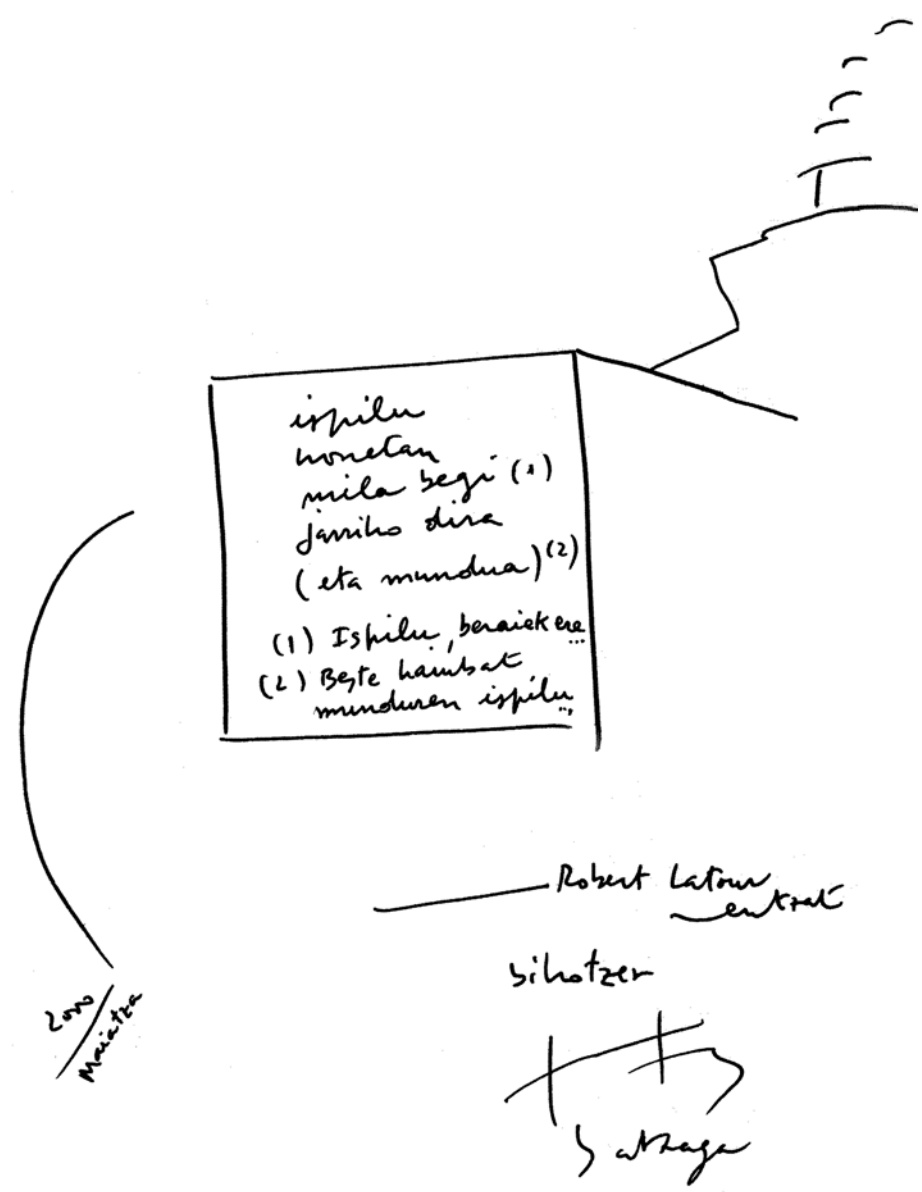 ispilu
honetan
mila begi (1)
jarriko dira
(eta mundua) (2)
(1) Ispilu, beraiek ere...
(2) Beste hainbat
munduren ispilu...
Robert Latour
entzat
bihotzez
2000
Maiatza